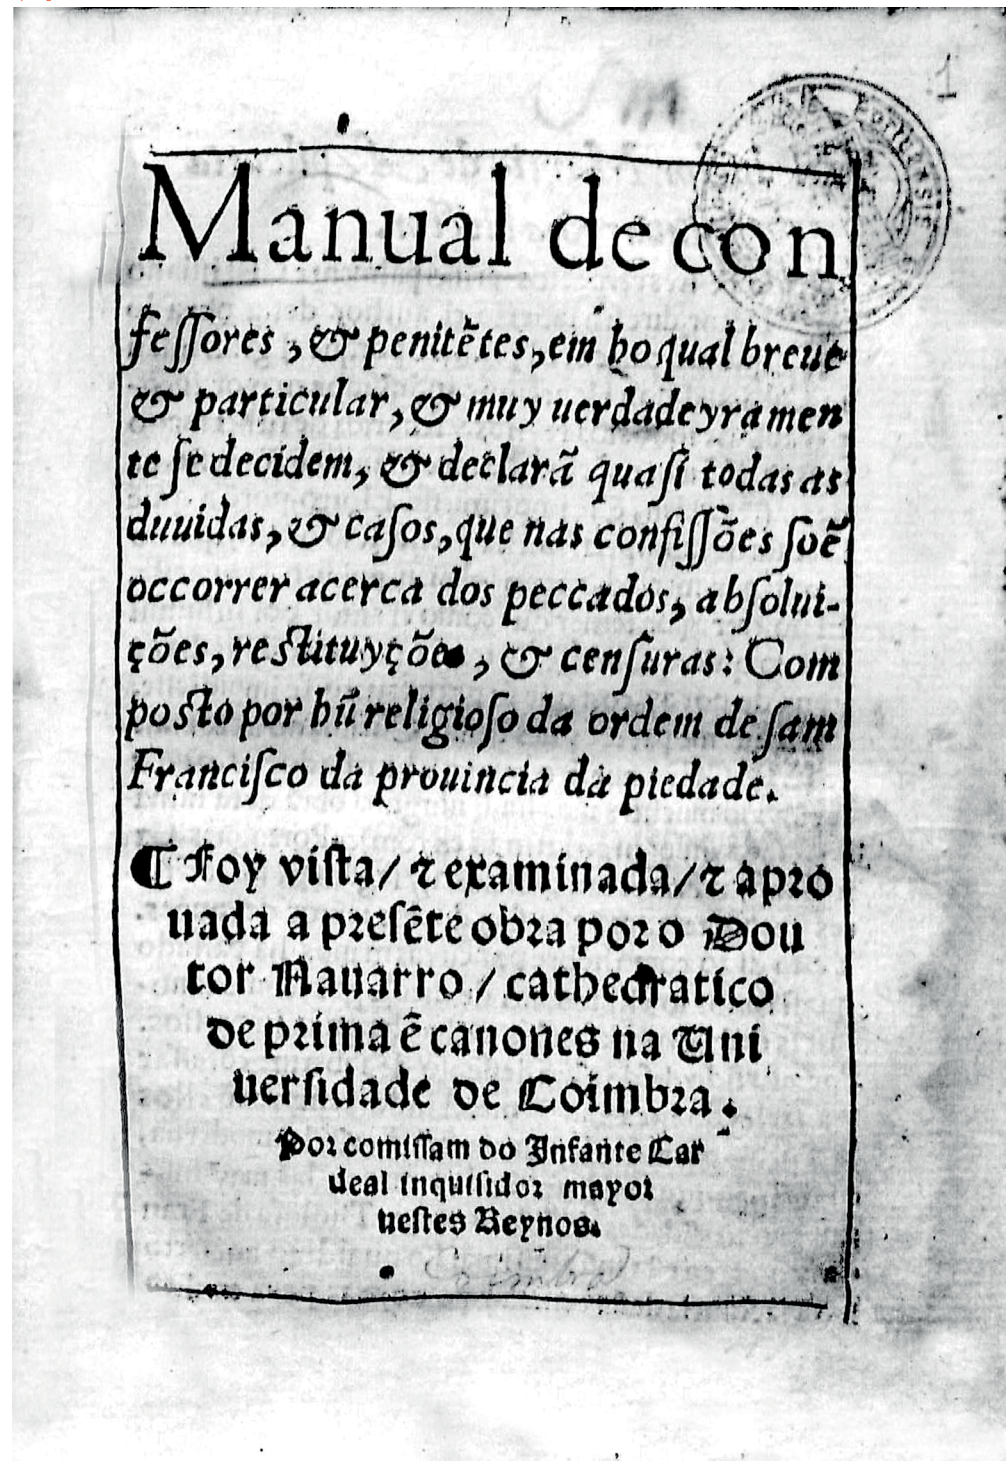 1
Manual de con
feſſores, & penitẽtes, em ho qual breue
& particular, & muy uerdadeyramen
te ſe decidem, & declarã quaſi todas as
duuidas, & caſos, que nas confiſſões ſoẽ
occorrer acerca dos peccados, abſolui-
ções, reſtituyções, & cenſuras: Com
poſto por hũ religioſo da ordem de ſam
Franciſco da prouincia da piedade.
¶ Foy viſta/ ⁊ examinada/ ⁊ apro
uada a preſẽte obra por o Dou
tor Nauarro / cathedratico
de prima ẽ canones na Uni
uerſidade de Coimbra.
Por comiſſam do Infante Car
deal inquiſidor mayor
neſtes Reynos.
Coimbra